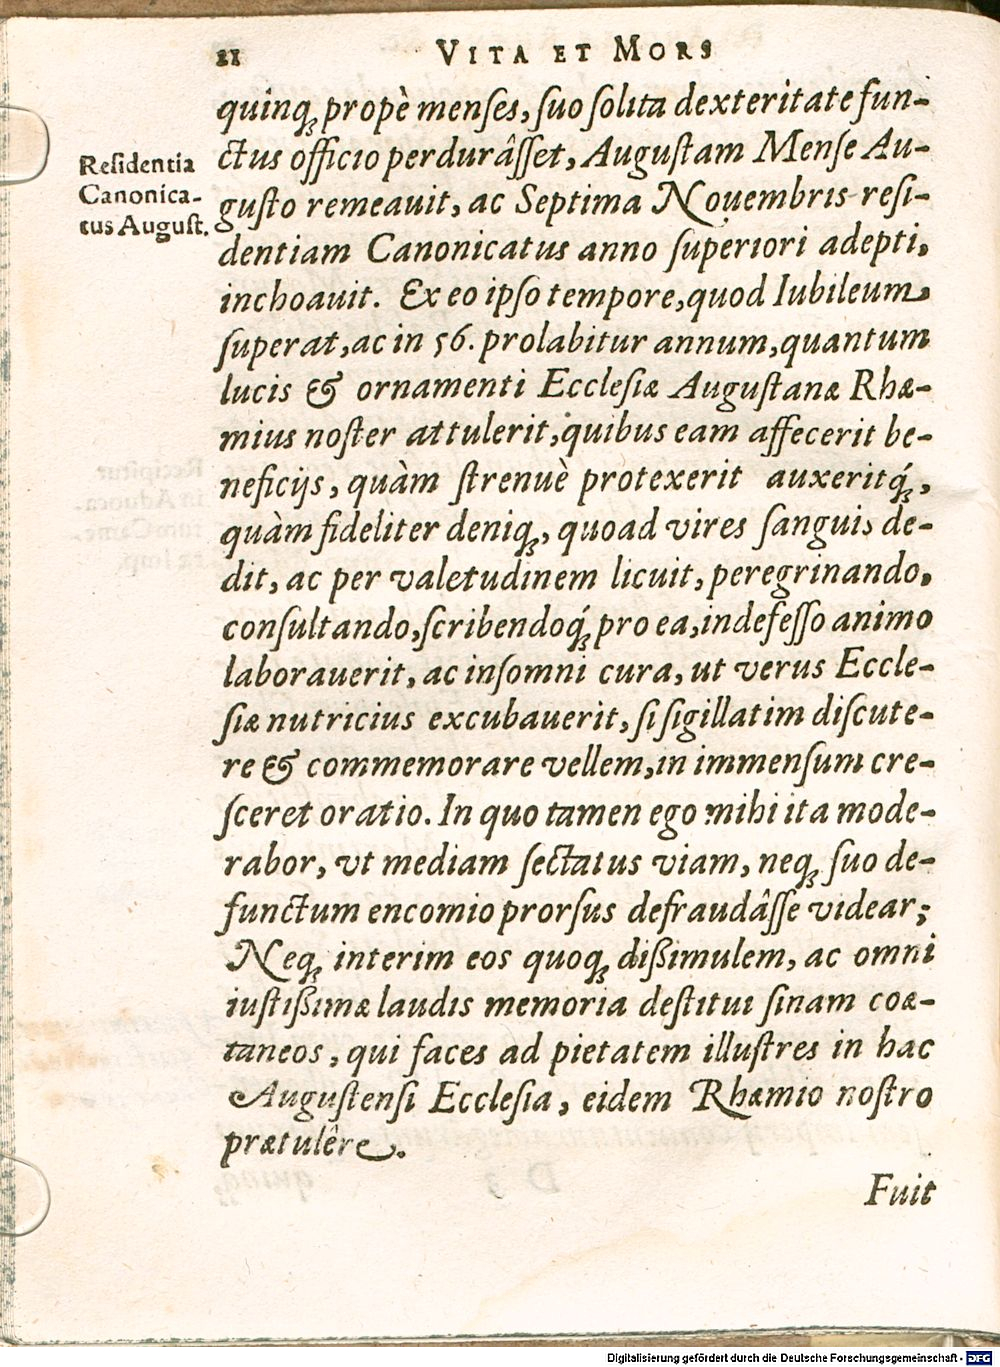 21 VITA ET MORS
quinq́ꝫ propè menses, suo solita dexteritate fun-
ctus officio perdurâſſet, Auguſtam Menſe Au-
guſto remeauit, ac Septima Nouembris reſi-
dentiam Canonicatus anno ſuperiori adepti,
inchoauit. Ex eo ipſo tempore, quod Iubileum
ſuperat, ac in 56. prolabitur annum, quantum
lucis & ornamenti Eccleſiæ Auguſtanæ Rhæ-
mius noſter attulerit, quibus eam affecerit be-
neficijs, quàm ſtrenuè protexerit auxeritq́ꝫ,
quàm fideliter deniqꝫ, quoad vires ſanguis de-
dit, ac per valetudinem licuit, peregrinando,
conſultando, ſcribendoq́ꝫ pro ea, indefeſſo animo
laborauerit, ac inſomni cura, ut verus Eccle-
ſiæ nutricius excubauerit, ſi ſigillatim diſcute-
re & commemorare vellem, in immenſum cre-
ſceret oratio. In quo tamen ego mihi ita mode-
rabor, vt mediam ſectatus viam, neqꝫ ſuo de-
functum encomio prorſus defraudâſſe videar;
Neqꝫ interim eos quoqꝫ dißimulem, ac omni
iuſtißimæ laudis memoria deſtitui ſinam coæ-
taneos, qui faces ad pietatem illuſtres in hac
Auguſtenſi Eccleſia, eidem Rhæmio noſtro
prætulêre.
Fuit
Reſidentia
Canonica-
tus Auguſt.
Digitalisierung gefördert durch die Deutsche Forschungsgemeinschaft - DFG